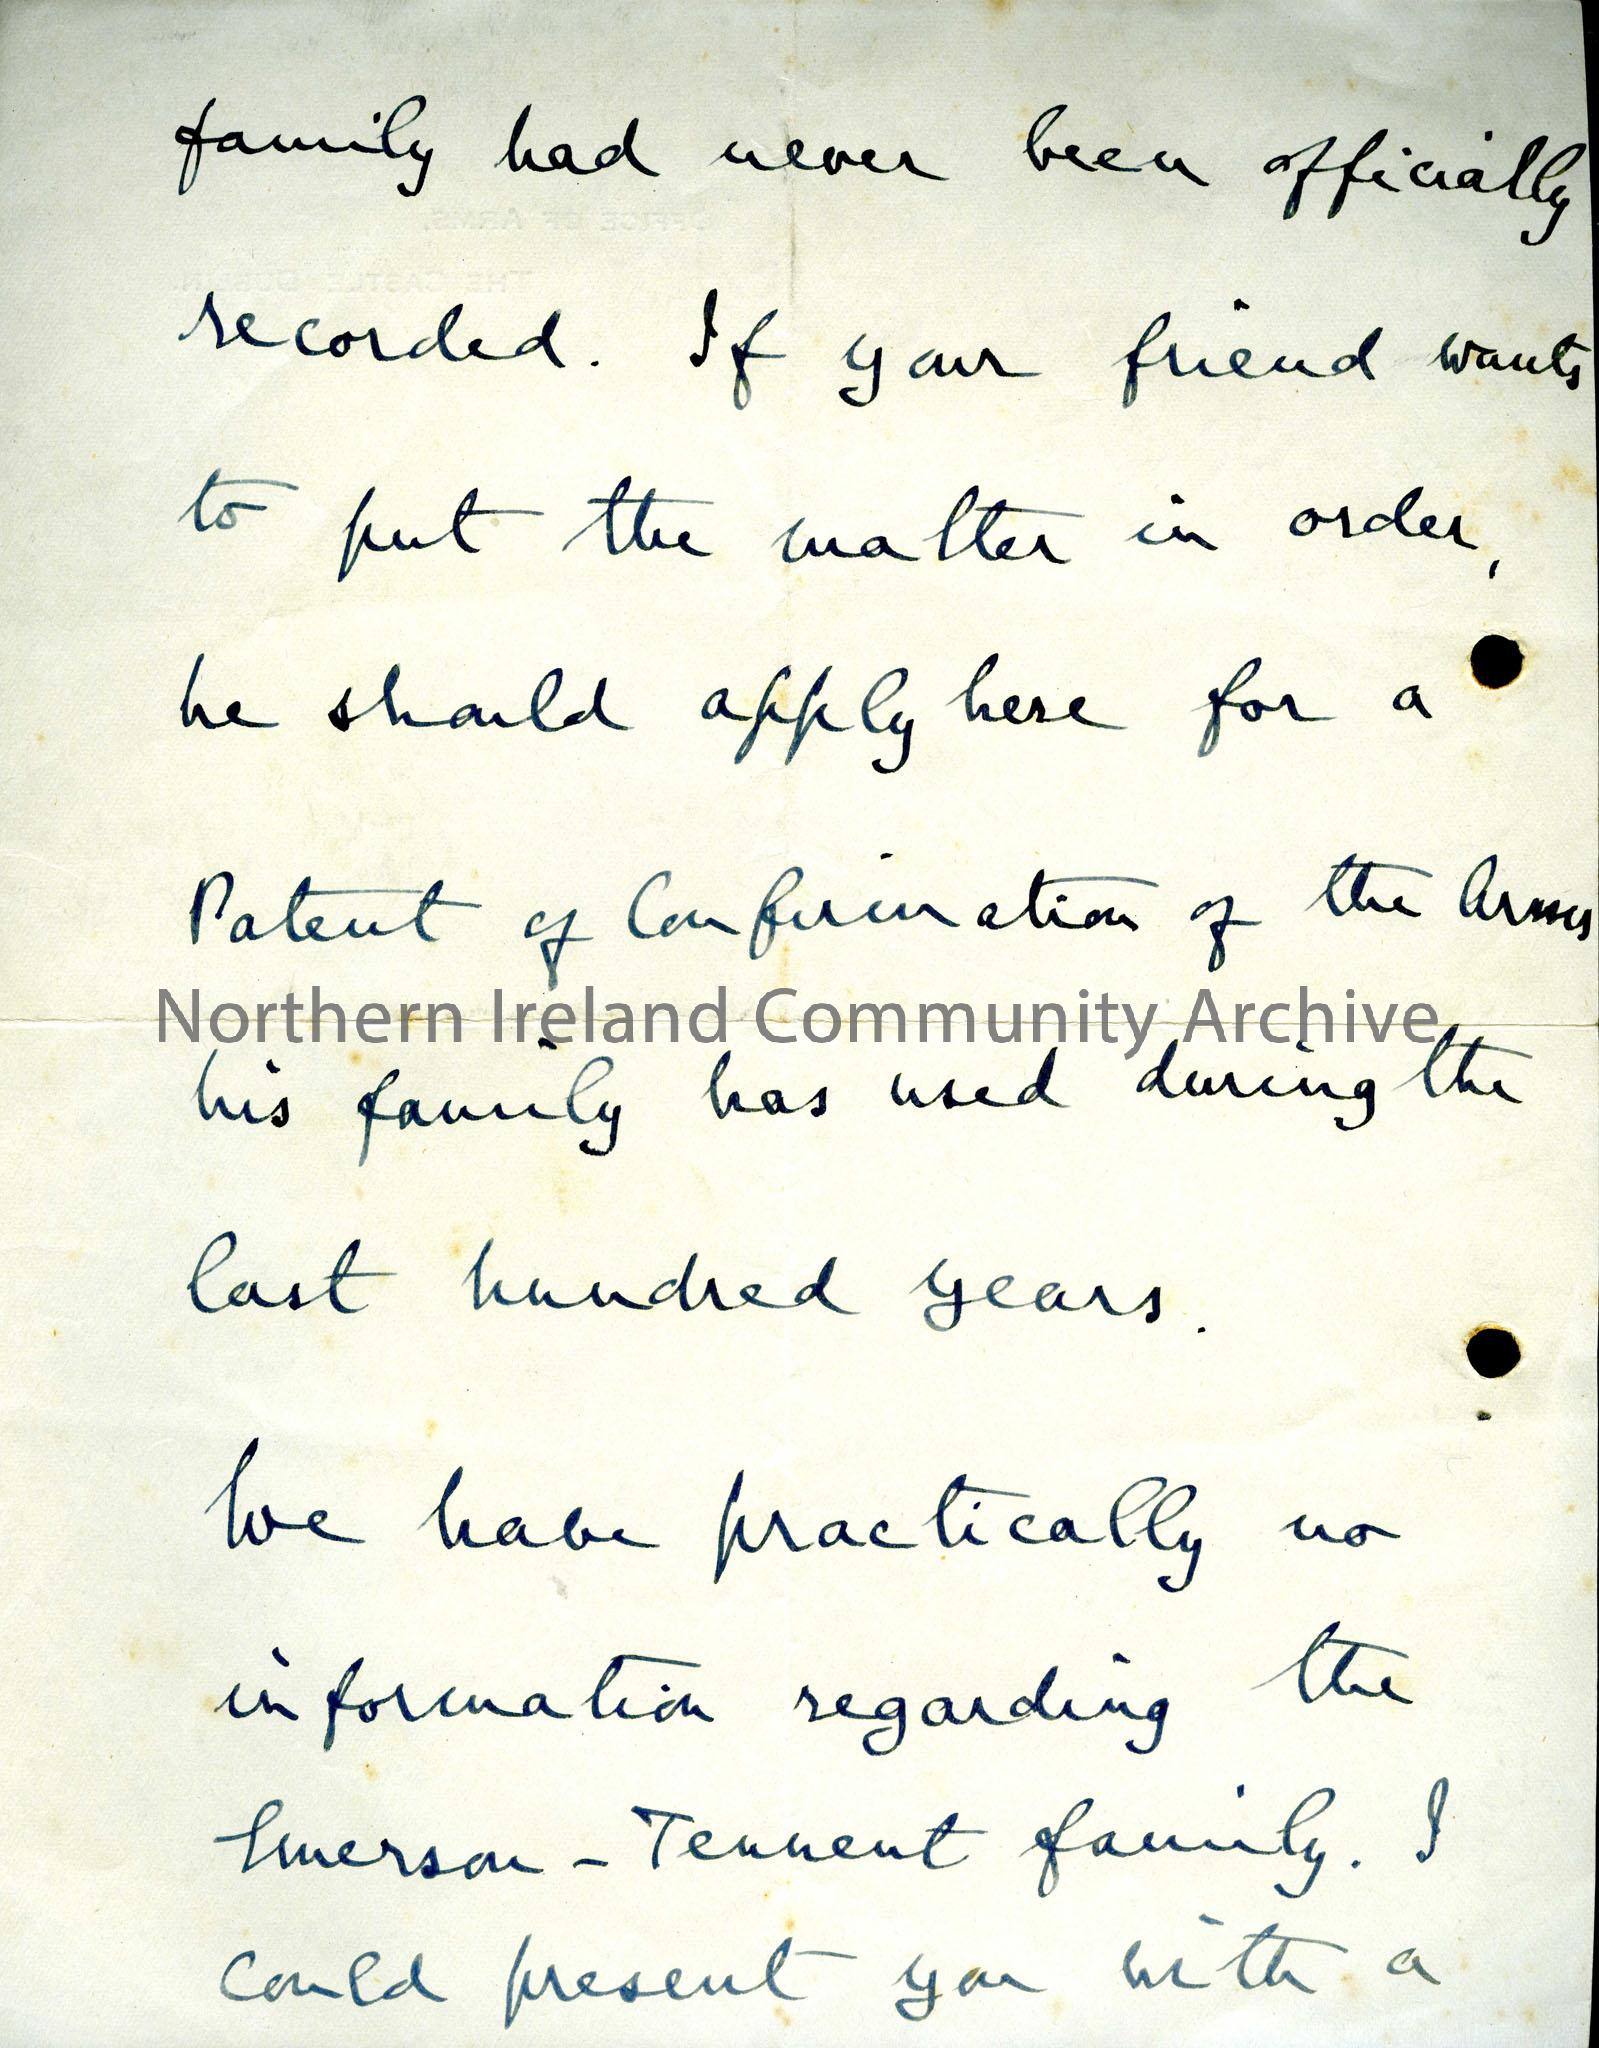 family had never been officially
OFFICE OF ARMS,
THE CASTLE DUBLIN.
recorded. If your friend wants
to put the matter in order,
he should apply here for a
Patent of Confirmation of the Arms
Northern Ireland Community Archive
his family has used during the
last hundred years.
We have practically no
information regarding the
Emerson-Tennent family. I
could present you with a